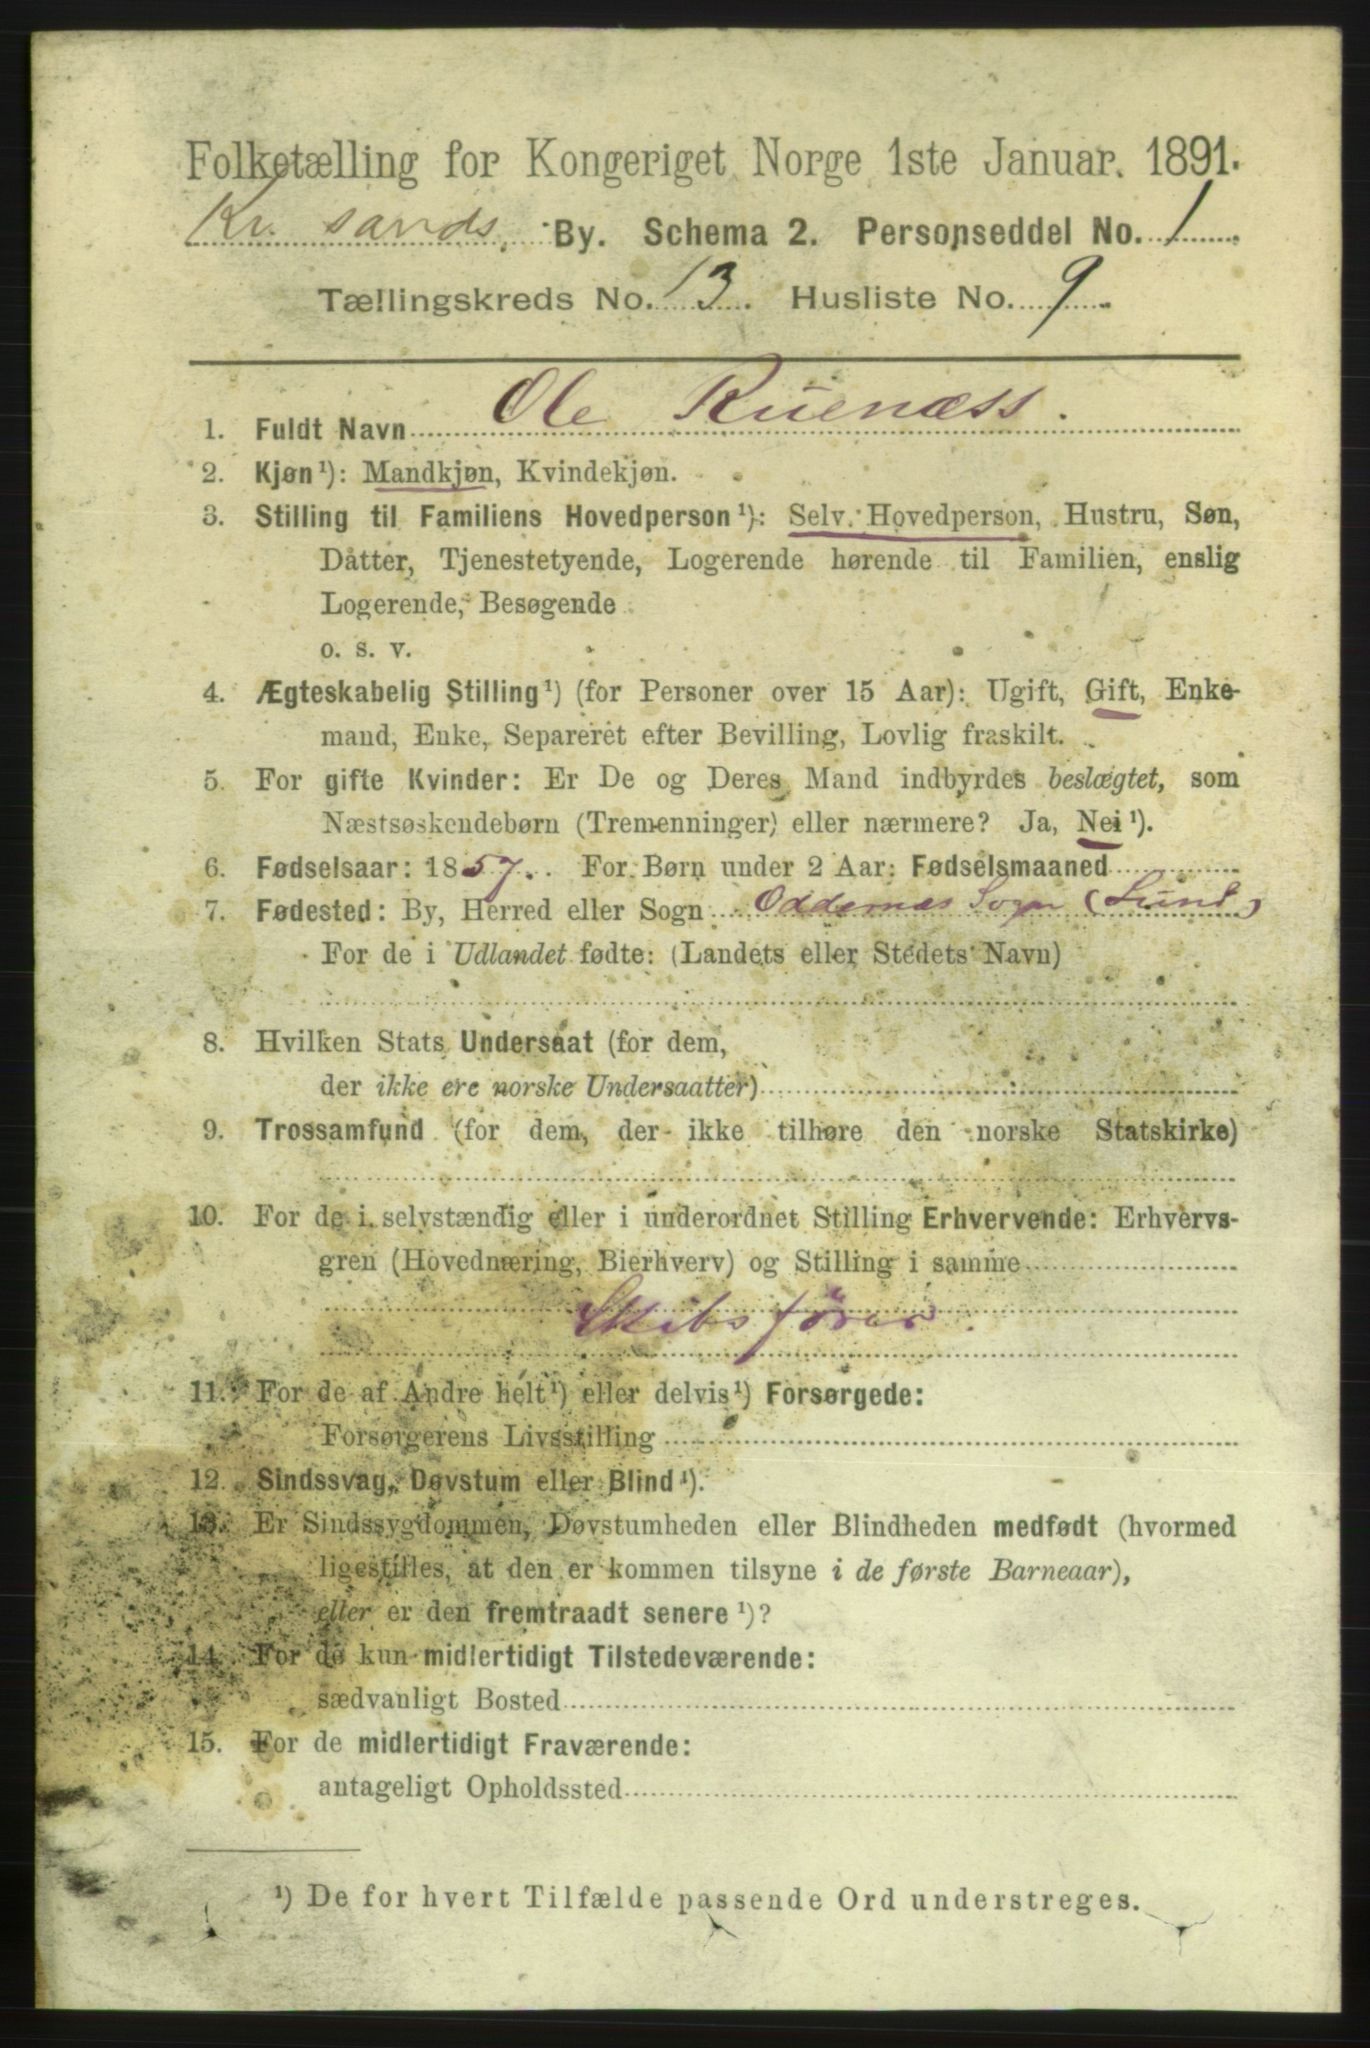 Folketælling for Kongeriget Norge 1ste Januar. 1891.
Kr. sands, By. Schema 2. Personseddel No. 1
Tællingskreds No. 13. Husliste No. 9.
1. Fuldt Navn Ole Ruenæss.
2. Kjøn¹): Mandkjøn, Kvindekjøn.
3. Stilling til Familiens Hovedperson¹): Selv Hovedperson, Hustru, Søn,
Datter, Tjenestetyende, Logerende hørende til Familien, enslig
Logerende, Besøgende
o. s. v.
4. Ægteskabelig Stilling¹) (for Personer over 15 Aar): Ugift, Gift, Enke-
mand, Enke, Separeret efter Bevilling, Lovlig fraskilt.
5. For gifte Kvinder: Er De og Deres Mand indbyrdes beslægtet, som
Næstsøskendebørn (Tremenninger) eller nærmere? Ja, Nei¹).
6. Fødselsaar: 1857. For Børn under 2 Aar: Fødselsmaaned
7. Fødested: By, Herred eller Sogn Oddernæs Sogn (Lund)
For de i Udlandet fødte: (Landets eller Stedets Navn)
8. Hvilken Stats Undersaat (for dem,
der ikke ere norske Undersaatter)
9. Trossamfund (for dem, der ikke tilhøre den norske Statskirke)
10. For de i selvstændig eller i underordnet Stilling Erhvervende: Erhvervs-
gren (Hovednæring, Bierhverv) og Stilling i samme
Skibsfører.
11. For de af Andre helt¹) eller delvis¹) Forsørgede:
Forsørgerens Livsstilling
12. Sindssvag, Døvstum eller Blind¹).
13. Er Sindssygdommen, Døvstumheden eller Blindheden medfødt (hvormed
ligestilles, at den er kommen tilsyne i de første Barneaar),
eller er den fremtraadt senere¹)?
14. For de kun midlertidigt Tilstedeværende:
sædvanligt Bosted
15. For de midlertidigt Fraværende:
antageligt Opholdssted
¹) De for hvert Tilfælde passende Ord understreges.